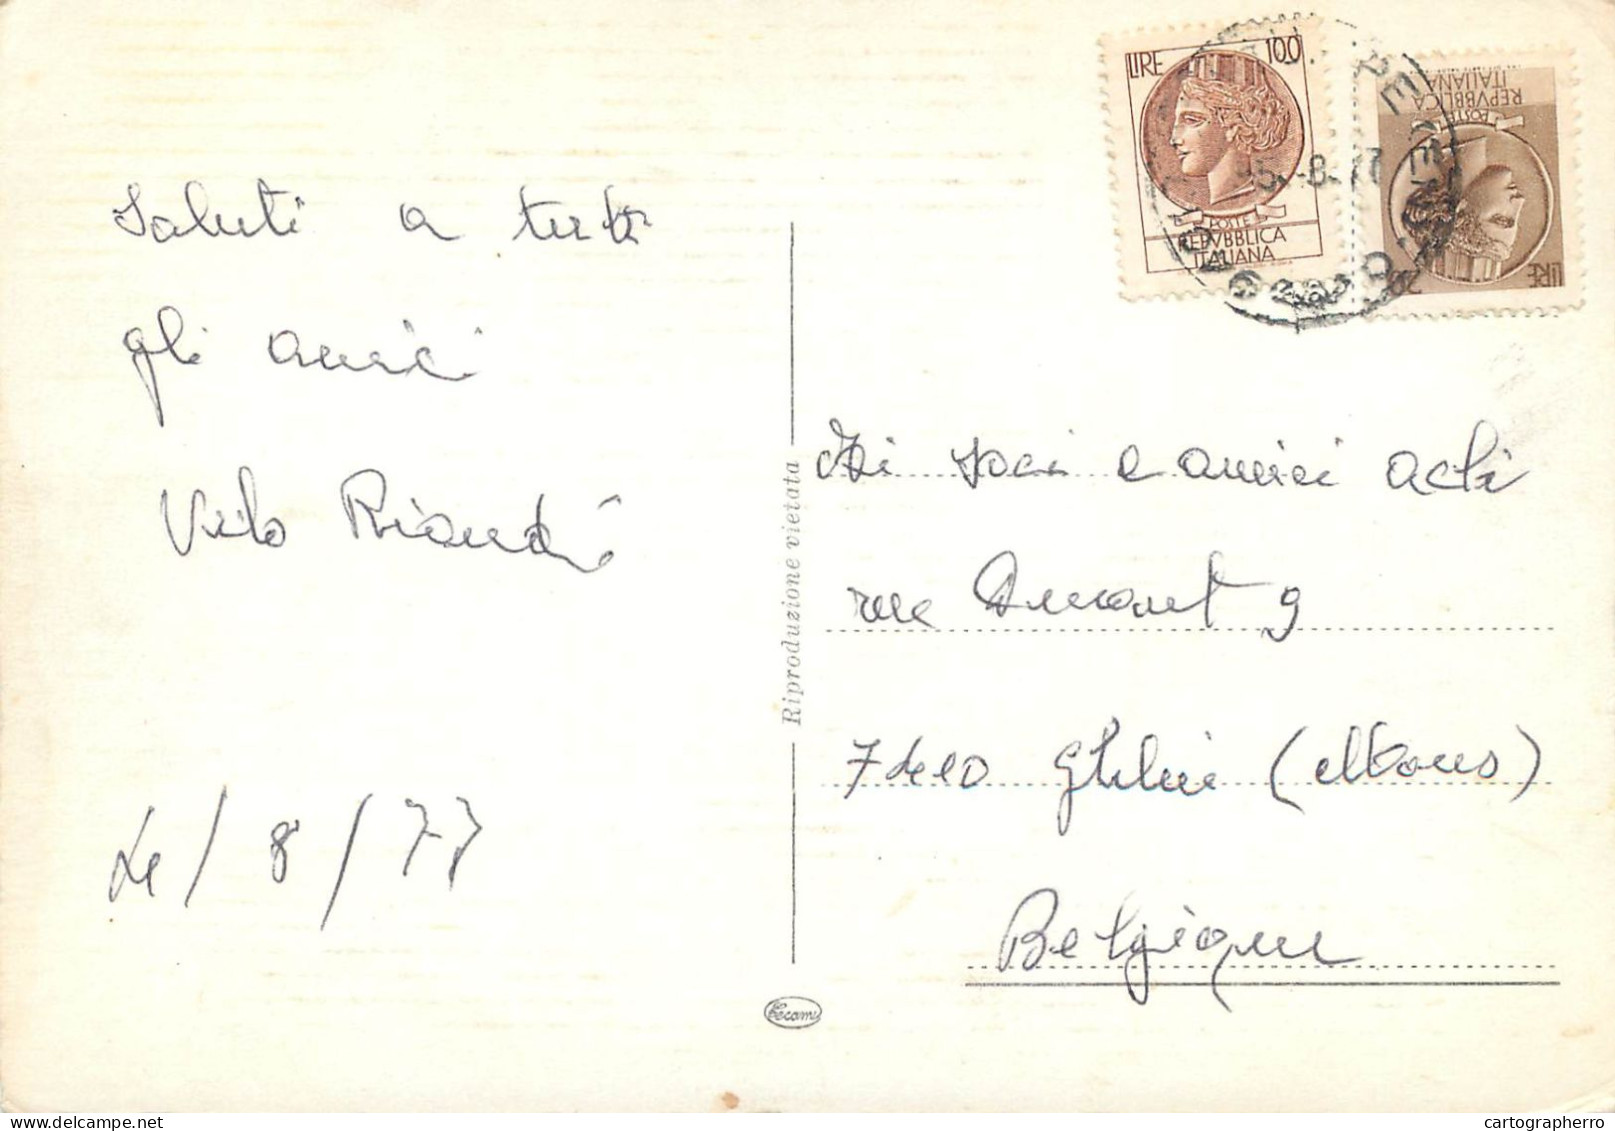 LIRE 100
POSTE
REPVBBLICA
ITALIANA
POSTE
REPVBBLICA
ITALIANA
LIRE
5-8-77
Saluti a tutti
gli amici
Vito
4/8/77
Riproduzione vietata
Ai soci e amici acli
rue Dumont 9
Ghlin (Mons)
Belgique
Cecami
cartographerro